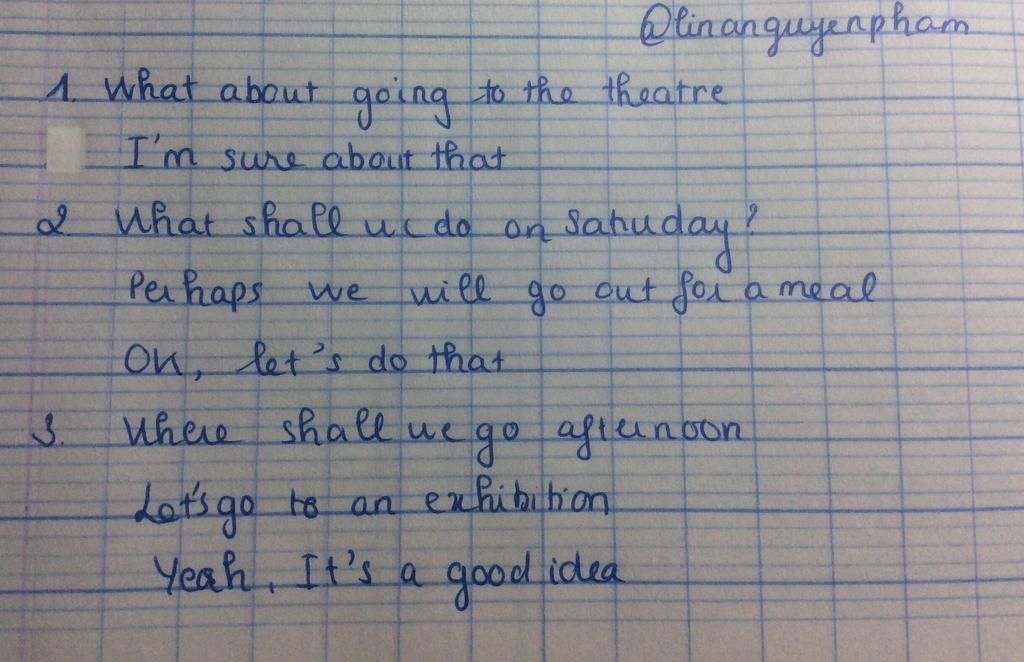 @linanguyenpham
1. What about going to the theatre
I'm sure about that
2 What shall we do on Satuday?
Perhaps we will go out for a meal
OK, let's do that
3. Where shall we go afternoon
Let's go to an exhibition
Yeah, It's a good idea